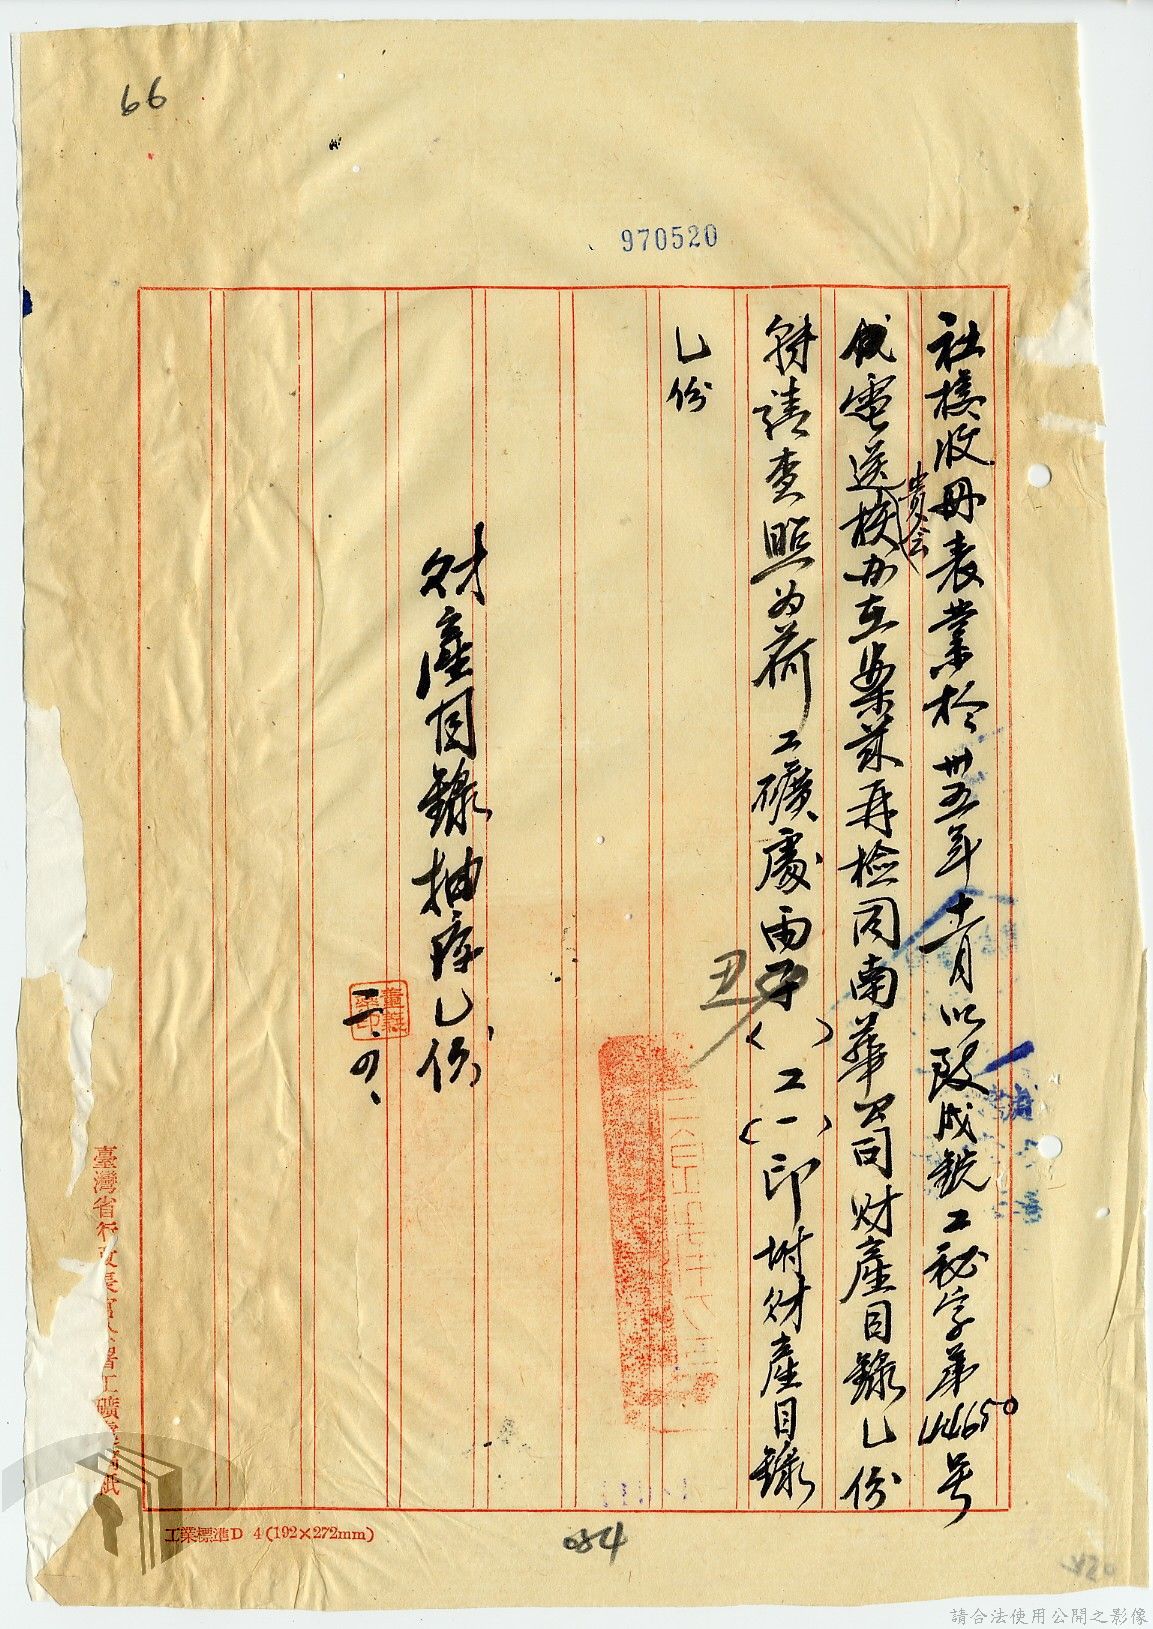 66
970520
社接收册表業於卅五年十一月以致戌銑工秘字第4465號
代電送貴会核办在案茲再檢同南華公司財產目錄乙份
特請查照为荷 工礦處雨子( )工(一)印附財產目錄
丑
乙份
財產目錄抽存乙份
二、四、
臺灣省行政長官公署工礦處稿紙
工業標準D 4(192×272mm)
084
請合法使用公開之影像